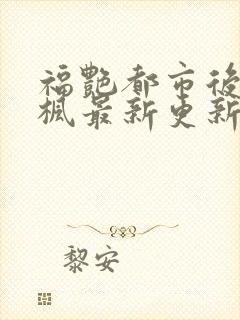 福艷都市後
楓最新更新
黎安